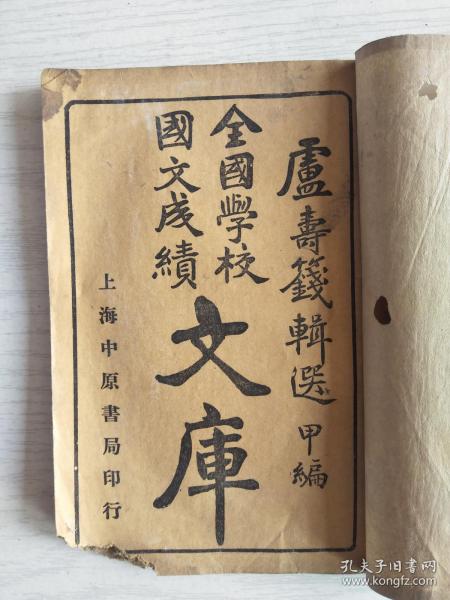 盧壽籛輯選 甲編
全國學校
國文成績
文庫
上海中原書局印行
孔夫子旧书网
www.kongfz.com